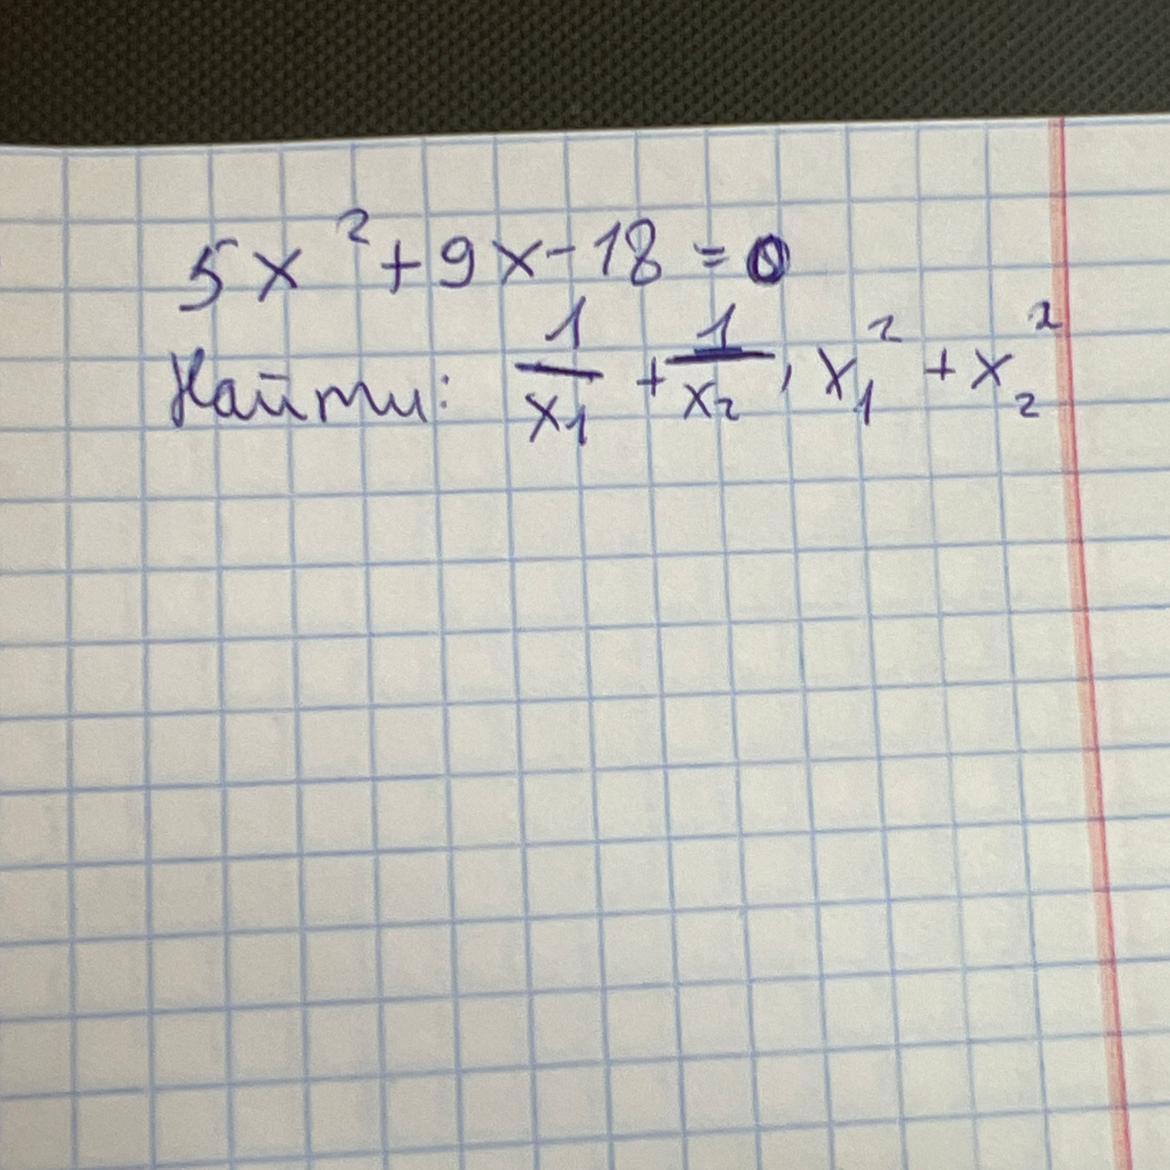 5x² + 9x - 18 = 0
Найти: 1/x₁ + 1/x₂, x₁² + x₂²